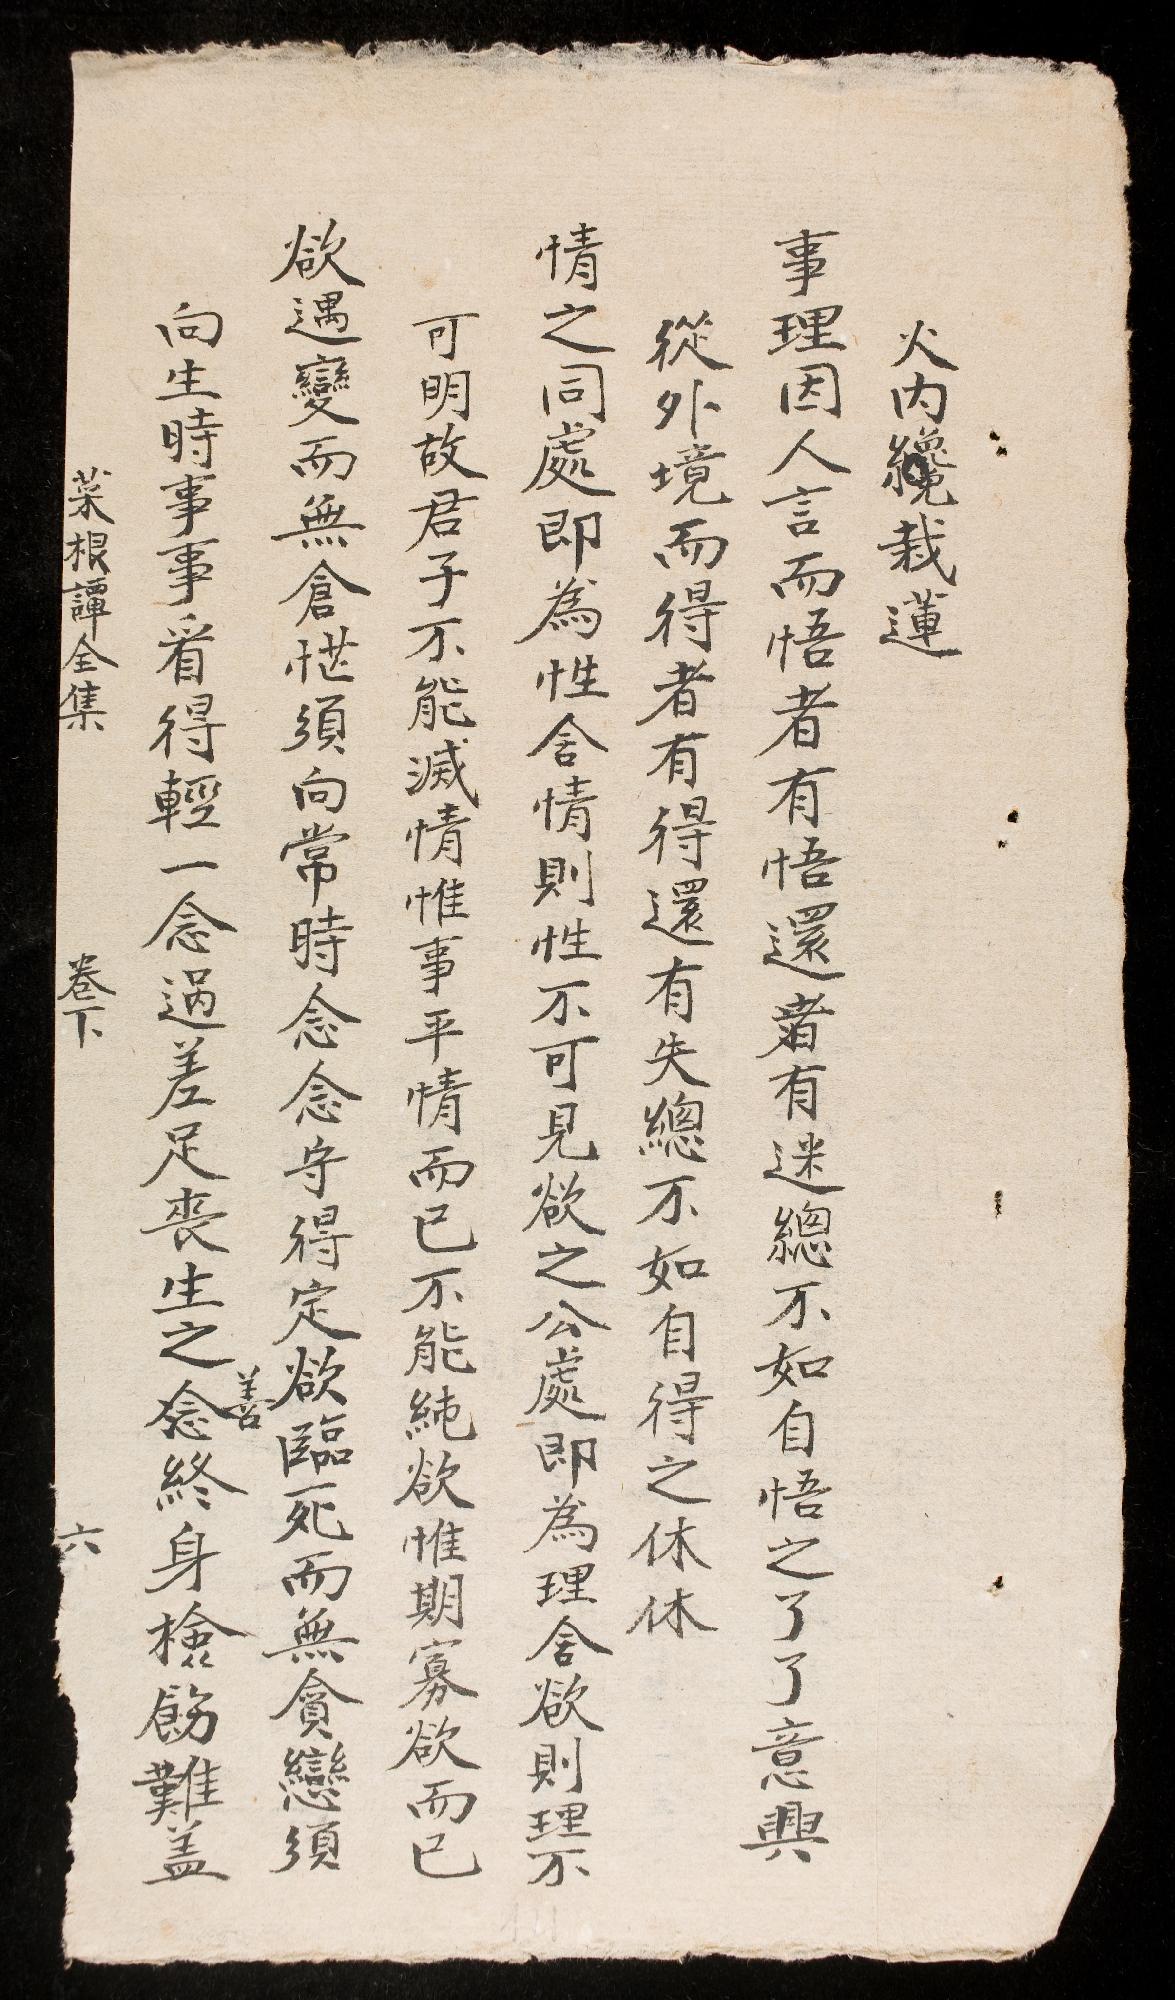 火內纔栽蓮
事理因人言而悟者有悟還者有迷總不如自悟之了了意興
從外境而得者有得還有失總不如自得之休休
情之同處即為性舍情則性不可見欲之公處即為理舍欲則理不
可明故君子不能滅情惟事平情而已不能純欲惟期寡欲而已
欲遇變而無倉惶須向常時念念守得定欲臨死而無貪戀須
向生時事事看得輕一念過差足喪生之善
念終身檢飭難蓋
菜根譚全集 卷下 六